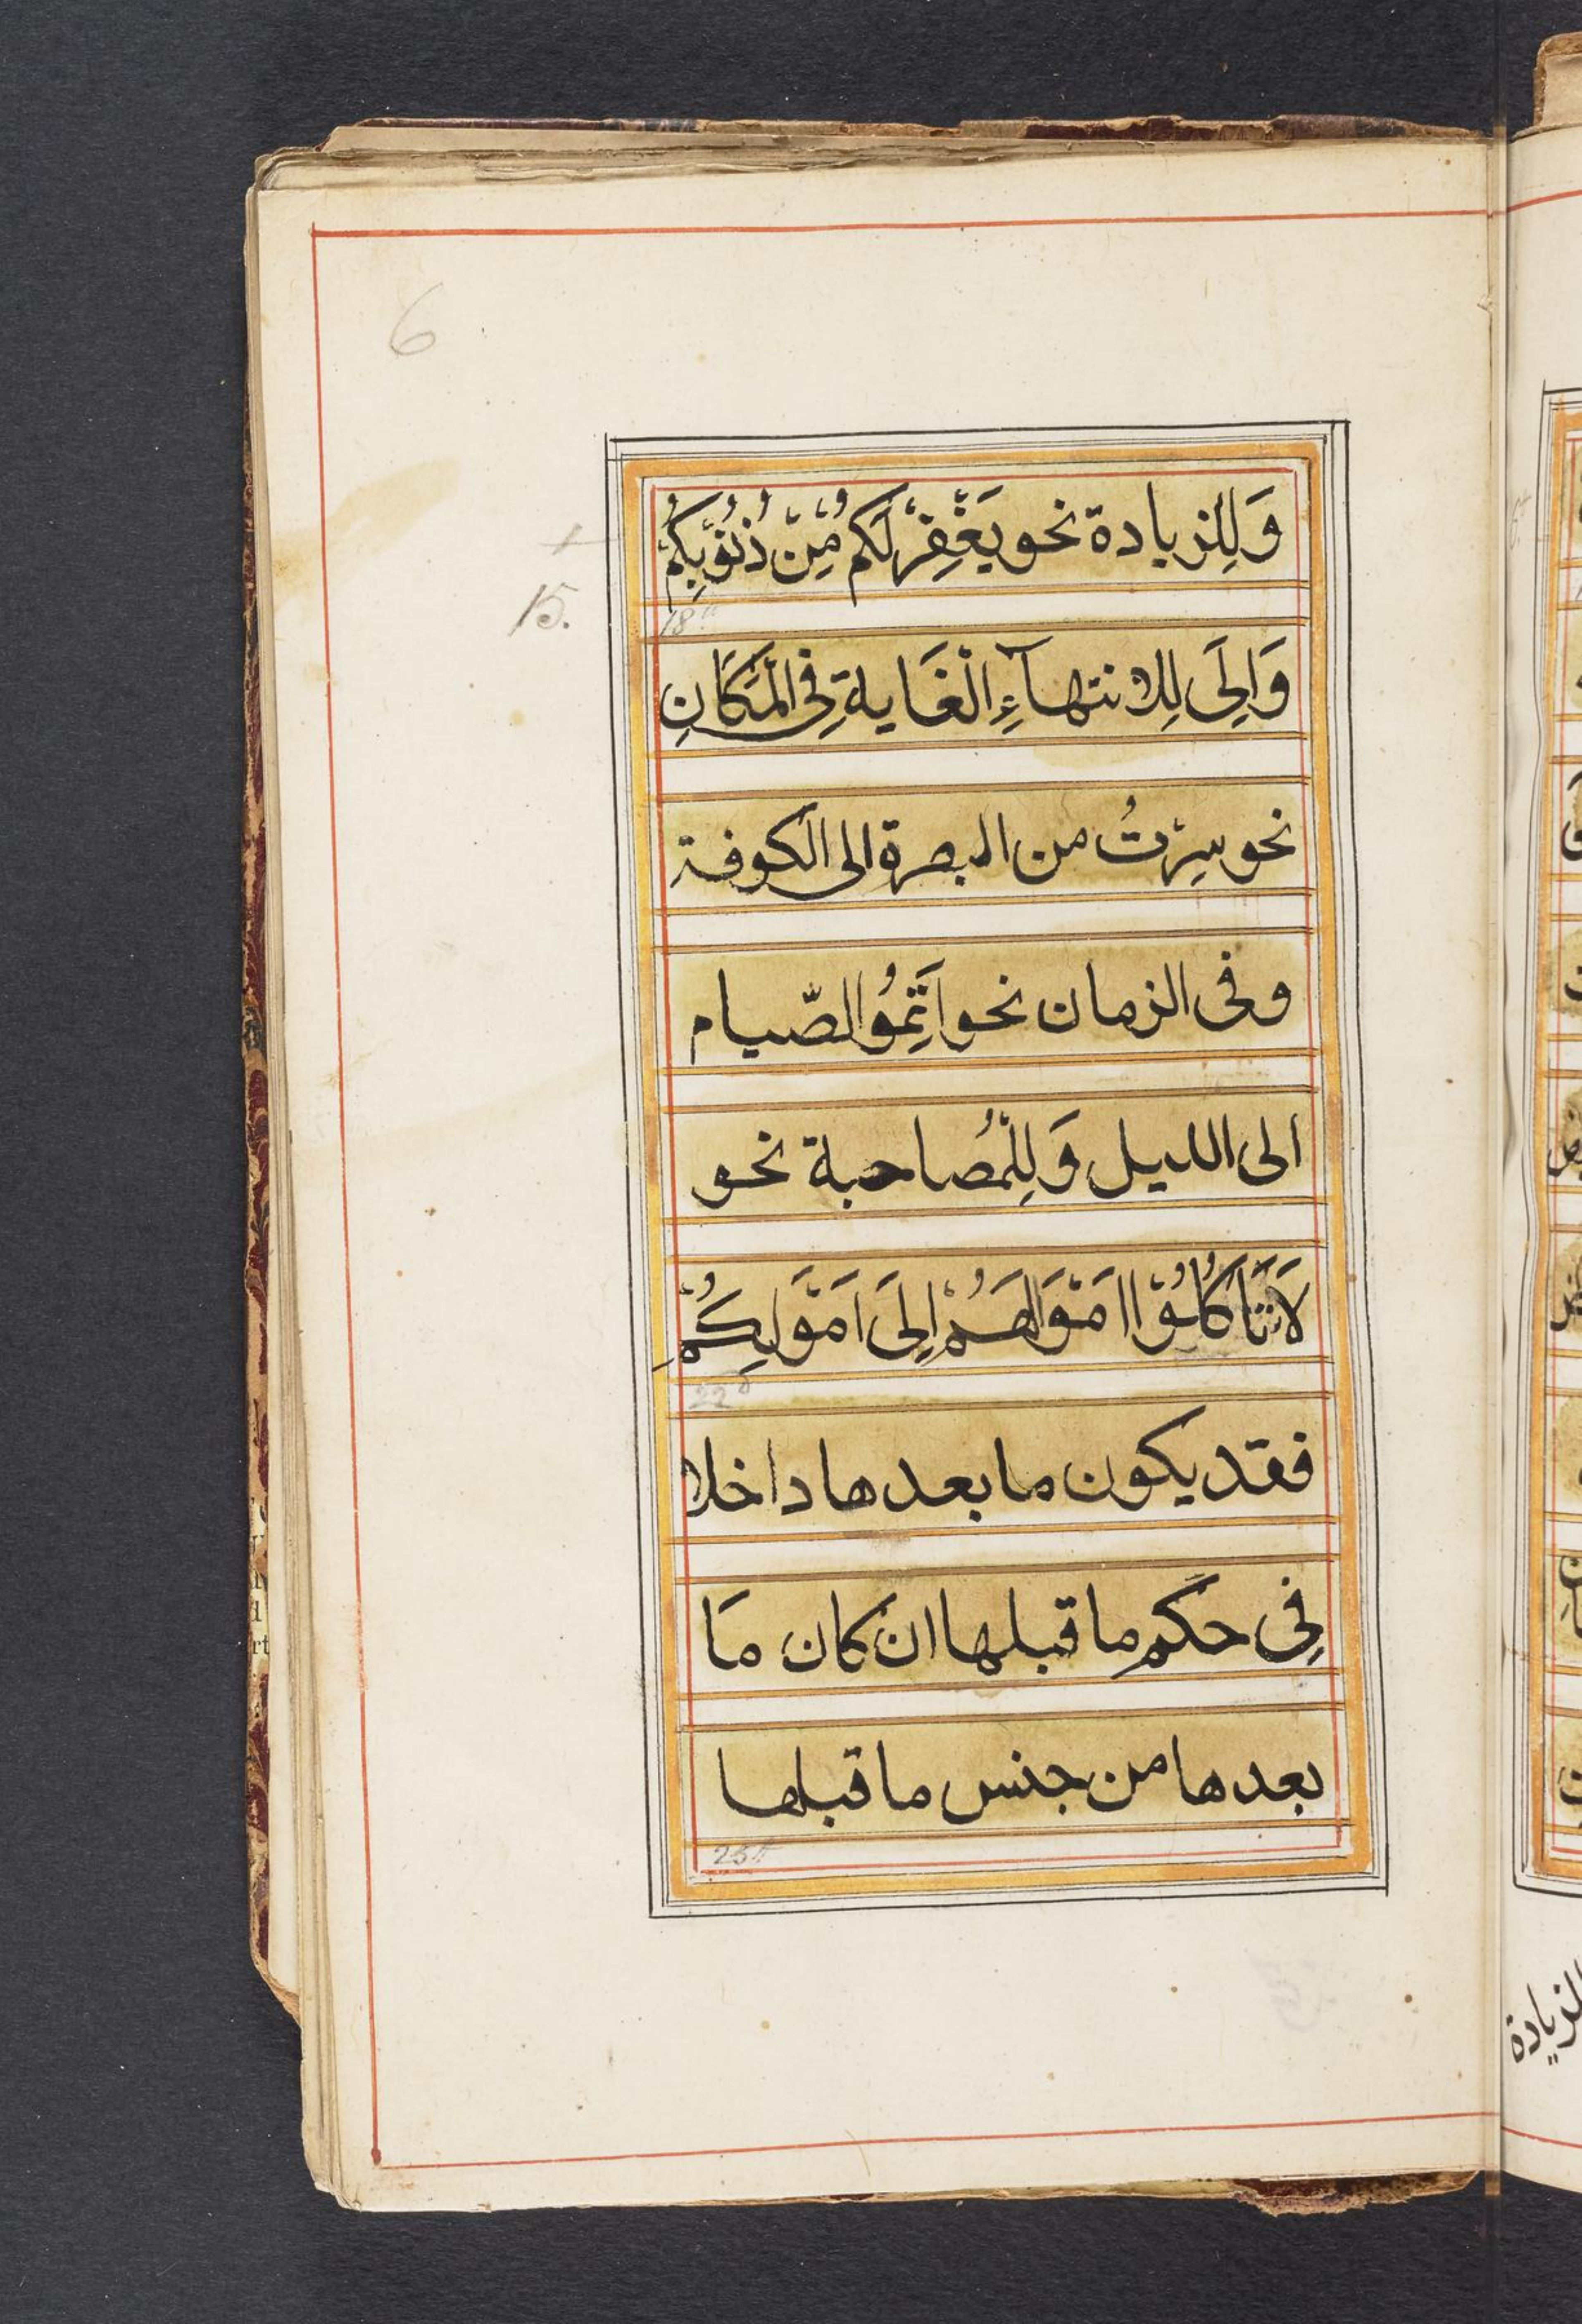 6
وَلِلزيادة نحو يَغْفِرْ لَكم مِّنْ ذُنُوْبِكُمْ
15.
18
وَاِلَى لِلانتهآءِ الْغَاية فِى الْمَكَانِ
نحو سِرْتُ من البصرة الى الكوفة
وفى الزمان نحو اَتِمُّوالصّيام
الى الليل وَلِلْمُصاحبة نحو
لَا تَاكُلُوْا اَمْوَالَهُمْ اِلَى اَمْوَالِكُمْ
22
فقد يكون ما بعدها داخلا
فِى حكم ما قبلها ان كان مَا
بعدها من جنس ما قبلها
25